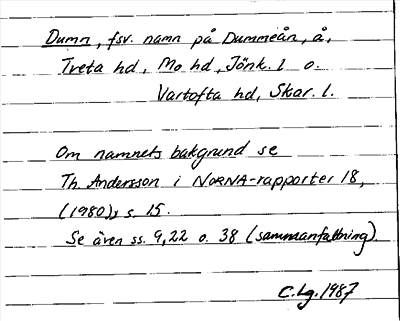 Dumn, fsv. namn på Dummeån, å,
Tveta hd, Mo hd, Jönk. l o.
Vartofta hd, Skar. l.
Om namnets bakgrund se
Th. Andersson i NORNA-rapporter 18,
(1980), s. 15.
Se även ss. 9, 22 o. 38 (sammanfattning).
C.Lg. 1987